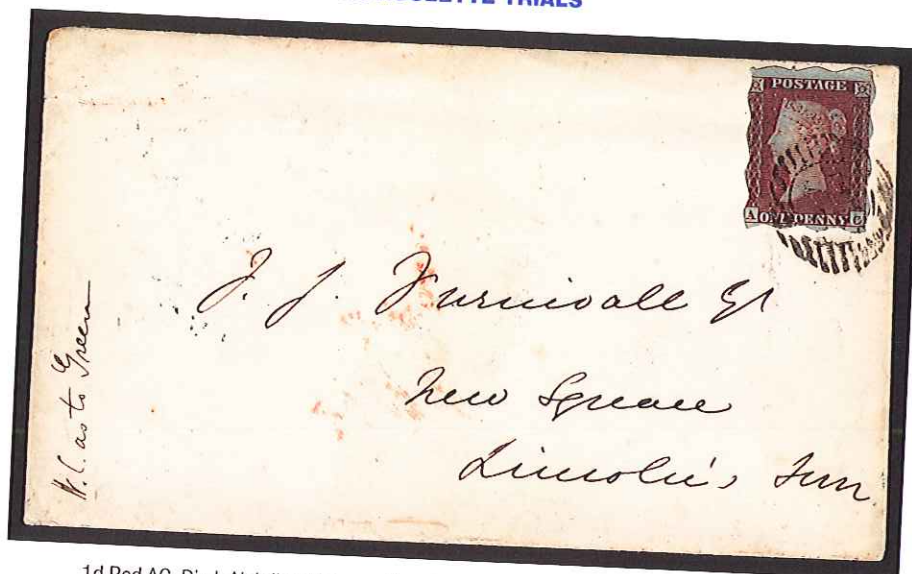 ROULETTE TRIALS
POSTAGE
A ONE PENNY
F. J. Furnivall Esq
New Square
Lincoln's Inn
as to Green
1d Red